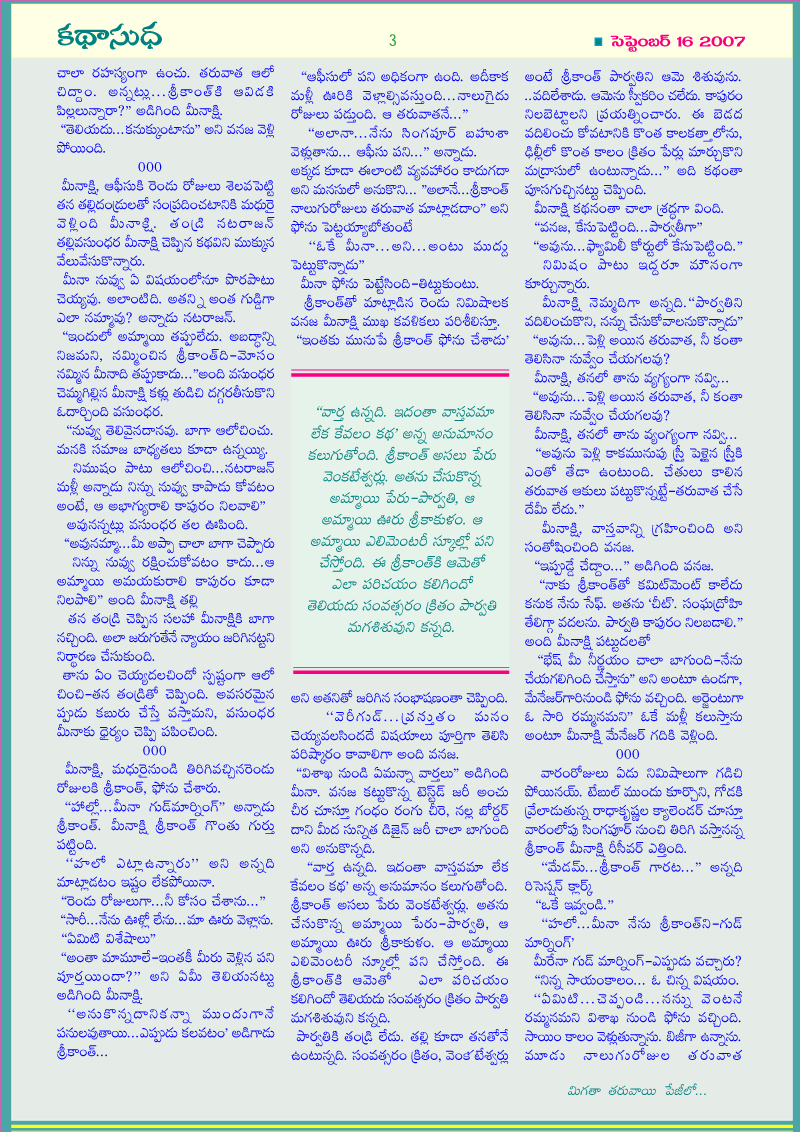 కథాసుధ
3
■ సెప్టెంబర్ 16 2007
చాలా రహస్యంగా ఉంచు. తరువాత ఆలో
చిద్దాం. అన్నట్లు...శ్రీకాంత్‌కి ఆవిడకి
పిల్లలున్నారా?” అడిగింది మీనాక్షి.
“తెలియదు...కనుక్కుంటాను” అని వనజ వెళ్లి
పోయింది.
000
మీనాక్షి, ఆఫీసుకి రెండు రోజులు శెలవపెట్టి
తన తల్లిదండ్రులతో సంప్రదించటానికి మధురై
వెళ్లింది మీనాక్షి. తండ్రి నటరాజన్
తల్లివసుంధర మీనాక్షి చెప్పిన కథవిని ముక్కున
వేలువేసుకొన్నారు.
మీనా నువ్వు ఏ విషయంలోనూ పొరపాటు
చెయ్యవు. అలాంటిది. అతన్ని అంత గుడ్డిగా
ఎలా నమ్మావు? అన్నాడు నటరాజన్.
“ఇందులో అమ్మాయి తప్పులేదు. అబద్ధాన్ని
నిజమని, నమ్మించిన శ్రీకాంత్‌ది-మోసం
నమ్మిన మీనాది తప్పుకాదు...”అంది వసుంధర
చెమ్మగిల్లిన మీనాక్షి కళ్లు తుడిచి దగ్గరతీసుకొని
ఓదార్చింది వసుంధర.
“నువ్వు తెలివైనదానవు. బాగా ఆలోచించు.
మనకి సమాజ బాధ్యతలు కూడా ఉన్నయ్యి.
నిముషం పాటు ఆలోచించి...నటరాజన్
మళ్లీ అన్నాడు నిన్ను నువ్వు కాపాడు కోవటం
అంటే, ఆ అభాగ్యురాలి కాపురం నిలవాలి”
అవునన్నట్లు వసుంధర తల ఊపింది.
“అవునమ్మా...మీ అప్పా చాలా బాగా చెప్పారు
నిన్ను నువ్వు రక్షించుకోవటం కాదు...ఆ
అమ్మాయి అమయకురాలి కాపురం కూడా
నిలపాలి” అంది మీనాక్షి తల్లి
తన తండ్రి చెప్పిన సలహా మీనాక్షికి బాగా
నచ్చింది. అలా జరుగుతేనే న్యాయం జరిగినట్టని
నిర్ధారణ చేసుకుంది.
తాను ఏం చెయ్యదలచిందో స్పష్టంగా ఆలో
చించి-తన తండ్రితో చెప్పింది. అవసరమైన
ప్పుడు కబురు చేస్తే వస్తామని, వసుంధర
మీనాకు ధైర్యం చెప్పి పపించింది.
000
మీనాక్షి, మధురైనుండి తిరిగివచ్చినరెండు
రోజులకి శ్రీకాంత్, ఫోను చేశారు.
“హాల్లో...మీనా గుడ్‌మార్నింగ్” అన్నాడు
శ్రీకాంత్. మీనాక్షి శ్రీకాంత్ గొంతు గుర్తు
పట్టింది.
‘‘హలో ఎట్లాఉన్నారు’’ అని అన్నది
మాట్లాడటం ఇష్టం లేకపోయినా.
“రెండు రోజులుగా...నీ కోసం చేశాను...”
“సారీ...నేను ఊళ్లో లేను...మా ఊరు వెళ్లాను.
“ఏమిటి విశేషాలు”
“అంతా మామూలే-ఇంతకీ మీరు వెళ్లిన పని
పూర్తయిందా?’’ అని ఏమీ తెలియనట్టు
అడిగింది మీనాక్షి.
‘‘అనుకొన్నదానికన్నా ముందుగానే
పనులవుతాయి...ఎప్పుడు కలవటం’ అడిగాడు
శ్రీకాంత్...
“ఆఫీసులో పని అధికంగా ఉంది. అదీకాక
మళ్లీ ఊరికి వెళ్లాల్సివస్తుంది...నాలుగైదు
రోజులు పడ్తుంది. ఆ తరువాతనే...”
‘‘అలానా...నేను సింగపూర్ బహుశా
వెళ్లుతాను... ఆఫీసు పని...” అన్నాడు.
అక్కడ కూడా ఈలాంటి వ్యవహారం కాదుగదా
అని మనసులో అనుకొని... ”అలానే...శ్రీకాంత్
నాలుగురోజులు తరువాత మాట్లాడదాం” అని
ఫోను పెట్టయ్యాబోతుంటే
‘‘ఓకే మీనా...అని...అంటు ముద్దు
పెట్టుకొన్నాడు”
మీనా ఫోను పెట్టేసింది-తిట్టుకుంటు.
శ్రీకాంత్‌తో మాట్లాడిన రెండు నిమిషాలక
వనజ మీనాక్షి ముఖ కవళికలు పరిశీలిస్తూ,
“ఇంతకు మునుపే శ్రీకాంత్ ఫోను చేశాడు’
“వార్త ఉన్నది. ఇదంతా వాస్తవమా
లేక కేవలం కథ’ అన్న అనుమానం
కలుగుతోంది. శ్రీకాంత్ అసలు పేరు
వెంకటేశ్వర్లు. అతను చేసుకొన్న
అమ్మాయి పేరు-పార్వతి, ఆ
అమ్మాయి ఊరు శ్రీకాకుళం. ఆ
అమ్మాయి ఎలిమెంటరీ స్కూల్లో పని
చేస్తోంది. ఈ శ్రీకాంత్‌కి ఆమెతో
ఎలా పరిచయం కలిగిందో
తెలియదు సంవత్సరం క్రితం పార్వతి
మగశిశువుని కన్నది.
అని అతనితో జరిగిన సంభాషణంతా చెప్పింది.
‘‘వెరీగుడ్...ప్రస్తుతం మనం
చెయ్యవలసిందదే విషయాలు పూర్తిగా తెలిసి
పరిష్కారం కావాలిగా అంది వనజ.
“విశాఖ నుండి ఏమన్నా వార్తలు” అడిగింది
మీనా. వనజ కట్టుకొన్న టెస్ట్‌డ్ జరీ అంచు
చీర చూస్తూ గంధం రంగు చీరె, నల్ల బోర్డర్
దాని మీద సున్నిత డిజైన్ జరీ చాలా బాగుంది
అని అనుకొన్నది.
“వార్త ఉన్నది. ఇదంతా వాస్తవమా లేక
కేవలం కథ’ అన్న అనుమానం కలుగుతోంది.
శ్రీకాంత్ అసలు పేరు వెంకటేశ్వర్లు. అతను
చేసుకొన్న అమ్మాయి పేరు-పార్వతి, ఆ
అమ్మాయి ఊరు శ్రీకాకుళం. ఆ అమ్మాయి
ఎలిమెంటరీ స్కూల్లో పని చేస్తోంది. ఈ
శ్రీకాంత్‌కి ఆమెతో ఎలా పరిచయం
కలిగిందో తెలియదు సంవత్సరం క్రితం పార్వతి
మగశిశువుని కన్నది.
పార్వతికి తండ్రి లేదు. తల్లి కూడా తనతోనే
ఉంటున్నది. సంవత్సరం క్రితం, వెంకటేశ్వర్లు
అంటే శ్రీకాంత్ పార్వతిని ఆమె శిశువును.
..వదిలేశాడు. ఆమెను స్వీకరిం చలేదు. కాపురం
నిలబెట్టాలని ప్రయత్నించారు. ఈ బెడద
వదిలించు కోవటానికి కొంత కాలకత్తాలోను,
ఢిల్లీలో కొంత కాలం క్రితం పేర్లు మార్చుకొని
మద్రాసులో ఉంటున్నాడు...” అది కథంతా
పూసగుచ్చినట్టు చెప్పింది.
మీనాక్షి కథనంతా చాలా శ్రద్ధగా వింది.
“వనజ, కేసుపెట్టింది...పార్వతీగా”
“అవును...ఫ్యామిలీ కోర్టులో కేసుపెట్టింది.”
నిమిషం పాటు ఇద్దరూ మౌనంగా
కూర్చున్నారు.
మీనాక్షి నెమ్మదిగా అన్నది.‘‘పార్వతిని
వదిలించుకొని, నన్ను చేసుకోవాలనుకొన్నాడు”
“అవును...పెళ్లి అయిన తరువాత, నీ కంతా
తెలిసినా నువ్వేం చేయగలవు?
మీనాక్షి, తనలో తాను వ్యగ్యంగా నవ్వి...
“అవును...పెళ్లి అయిన తరువాత, నీ కంతా
తెలుసినా నువ్వేం చేయగలవు?
మీనాక్షి, తనలో తాను వ్యంగ్యంగా నవ్వి...
“అవును పెళ్లి కాకమునుపు స్త్రీ పెళ్లైన స్త్రీకి
ఎంతో తేడా ఉంటుంది. చేతులు కాలిన
తరువాత ఆకులు పట్టుకొన్నట్టే-తరువాత చేసే
దేమీ లేదు.”
మీనాక్షి, వాస్తవాన్ని గ్రహించింది అని
సంతోషించింది వనజ.
“ఇప్పుడ్డే చేద్దాం...” అడిగింది వనజ.
“నాకు శ్రీకాంత్‌తో కమిట్‌మెంట్ కాలేదు
కనుక నేను సేఫ్. అతను ‘చీట్’. సంఘద్రోహి
తేలిగ్గా వదలను. పార్వతి కాపురం నిలబడాలి.”
అంది మీనాక్షి పట్టుదలతో
“భేష్ మీ నిర్ణయం చాలా బాగుంది-నేను
చేయగలిగింది చేస్తాను” అని అంటూ ఉండగా,
మేనేజర్‌గారినుండి ఫోను వచ్చింది. అర్జెంటుగా
ఓ సారి రమ్మనమని” ఓకే మళ్లీ కలుస్తాను
అంటూ మీనాక్షి మేనేజర్ గదికి వెళ్లింది.
000
వారంరోజులు ఏడు నిమిషాలుగా గడిచి
పోయినయ్. టేబుల్ ముందు కూర్చొని, గోడకి
వ్రేలాడుతున్న రాధాకృష్ణల క్యాలెండర్ చూస్తూ
వారంలోపు సింగపూర్ నుంచి తిరిగి వస్తానన్న
శ్రీకాంత్ మీనాక్షి రీసీవర్ ఎత్తింది.
‘‘మేడమ్...శ్రీకాంత్ గారట...” అన్నది
రిసెప్షన్ క్లార్క్
“ఓకే ఇవ్వండి.”
‘‘హలో...మీనా నేను శ్రీకాంత్‌ని-గుడ్
మార్నింగ్’
మీరేనా గుడ్ మార్నింగ్-ఎప్పుడు వచ్చారు?
“నిన్న సాయంకాలం... ఓ చిన్న విషయం.
‘‘ఏమిటి...చెప్పండి...నన్ను వెంటనే
రమ్మనమని విశాఖ నుండి ఫోను వచ్చింది.
సాయిం కాలం వెళ్లుతున్నాను. బిజీగా ఉన్నాను.
మూడు నాలుగురోజుల తరువాత
మిగతా తరువాయి పేజీలో...